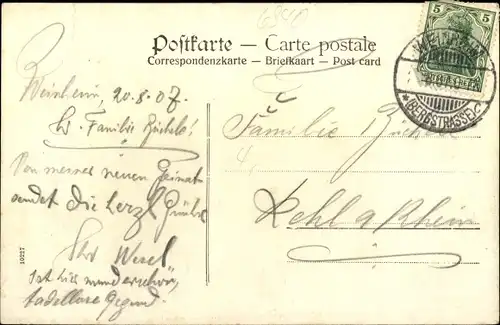 Postkarte — Carte postale
Correspondenzkarte — Briefkaart — Post card
5 5
WEINHEIM
(BERGSTRASSE)
Weinheim, 20.8.07.
Familie
Von meiner neuen Heimat
sendet die herzl. Grüße
Ihr Wesel
Ist hier wunderschön,
tadellose Gegend.
Familie
Kehl a Rhein
10227